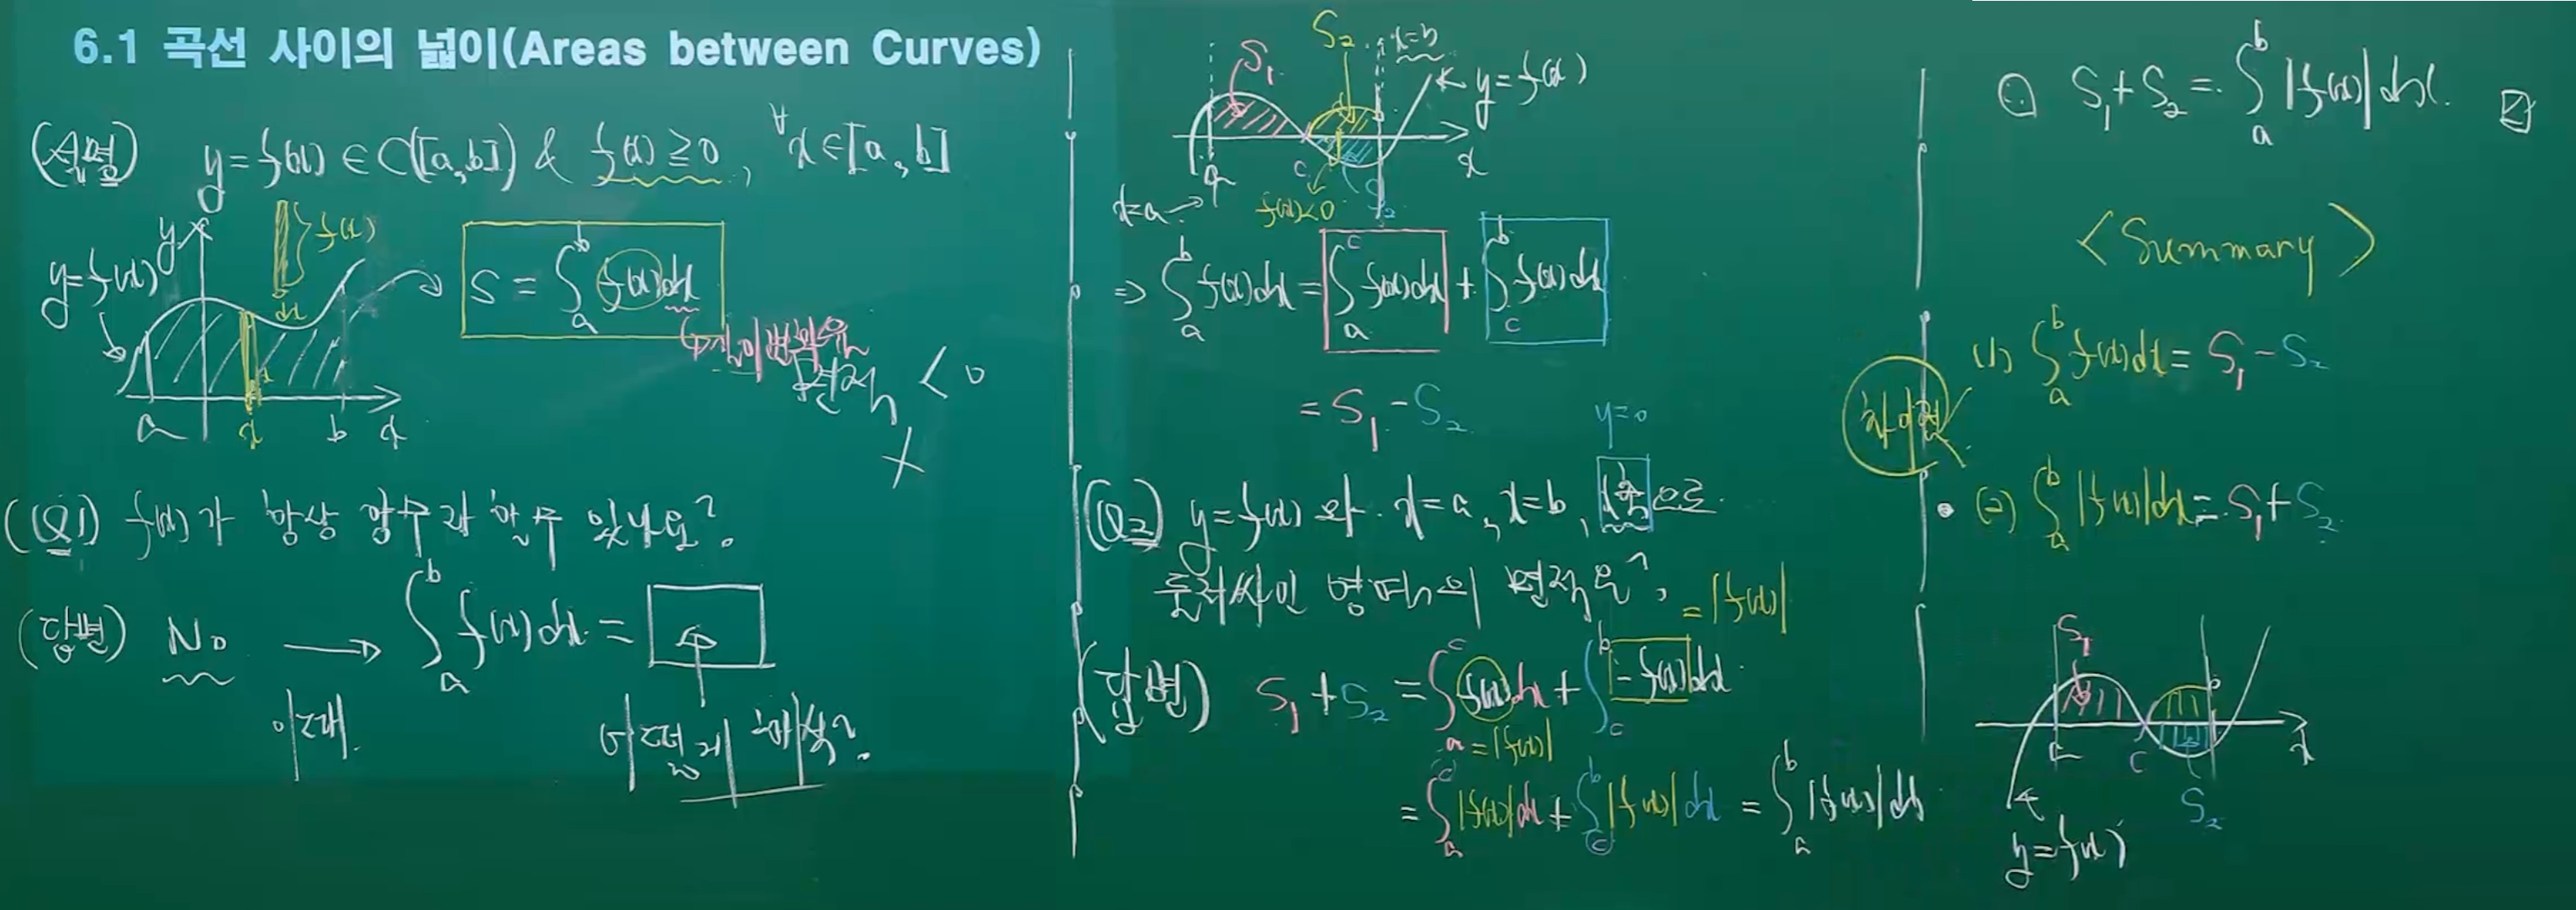 6.1 곡선 사이의 넓이(Areas between Curves)
(설명) y=f(x) ∈ C([a,b]) & f(x) ≧ 0, ∀x∈[a, b]
y
f(x)
y=f(x)
dx
S = ∫_a^b f(x)dx
< 0
a
x
b
x
(Q1) f(x)가 항상 양수라 할 수 있나요?
(답변) No → ∫_a^b f(x)dx =
이때.
어떻게 해석?
S₁
S₂
x=b
y=f(x)
a
c
x
x=a
f(x)<0
S₂
⇒ ∫_a^b f(x)dx = ∫_a^c f(x)dx + ∫_c^b f(x)dx
= S₁ - S₂
y=0
(Q2) y=f(x)와 x=a, x=b, x축으로
둘러싸인 영역의 면적은?
= |f(x)|
(답변) S₁ + S₂ = ∫_a^c f(x)dx + ∫_c^b -f(x)dx
= |f(x)|
= ∫_a^c |f(x)|dx + ∫_c^b |f(x)|dx = ∫_a^b |f(x)|dx
∴ S₁ + S₂ = ∫_a^b |f(x)|dx.
<Summary>
(1) ∫_a^b f(x)dx = S₁ - S₂
차이점
(2) ∫_a^b |f(x)|dx = S₁ + S₂
S₁
b
a
c
x
S₂
y=f(x)